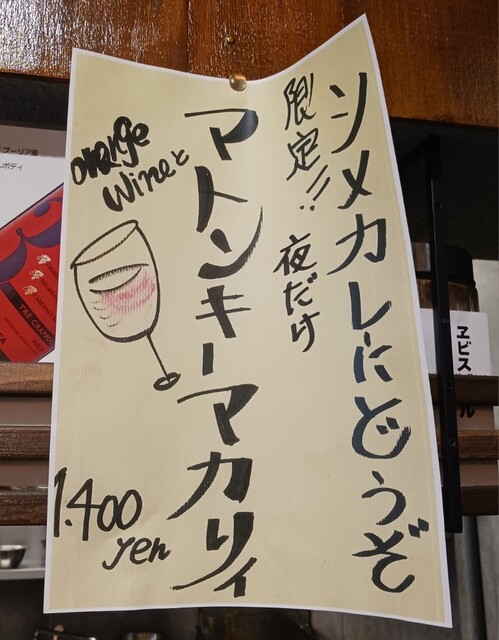 シメカレにどうぞ
限定!!
夜だけ
マトンキーマカリィ
orange
wineと
1.400
yen
ヱビス
ル
ボディ